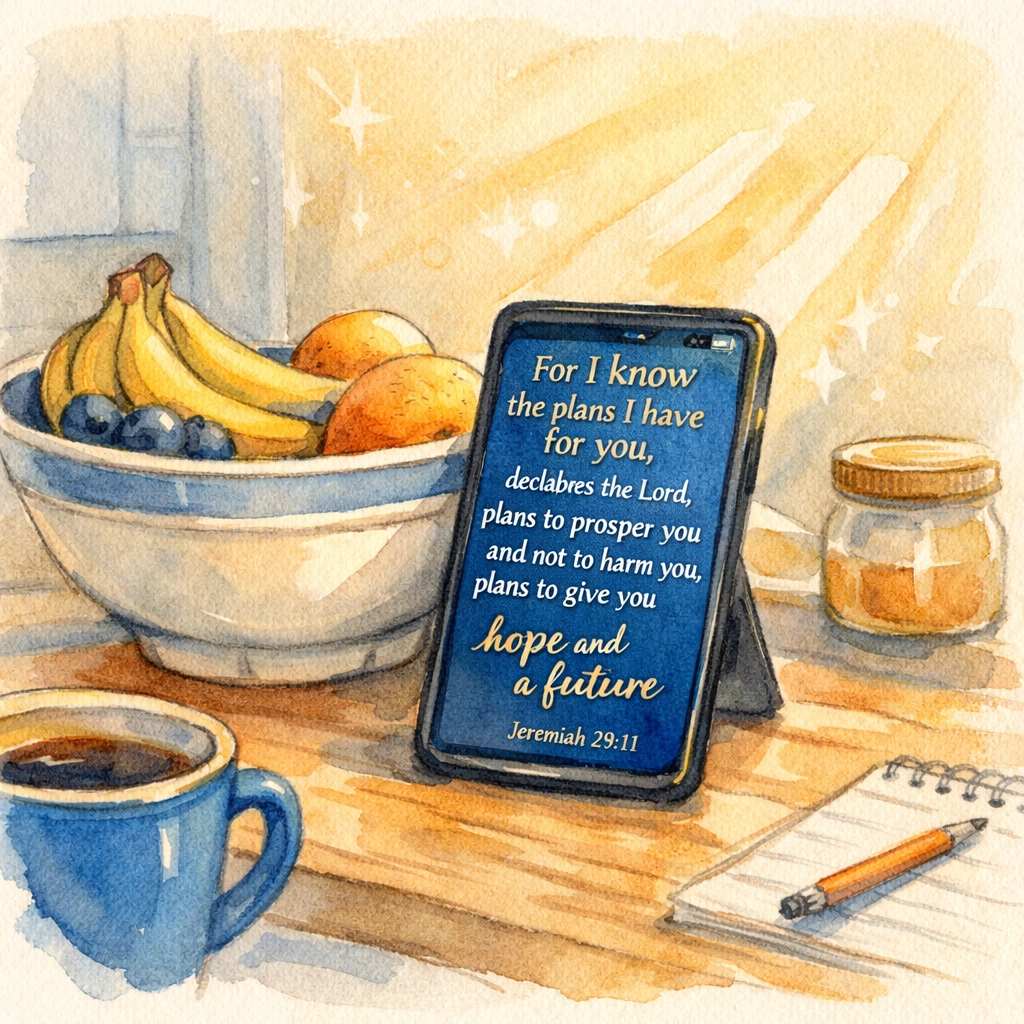 For I know
the plans I have
for you,
declabres the Lord,
plans to prosper you
and not to harm you,
plans to give you
hope and
a future
Jeremiah 29:11